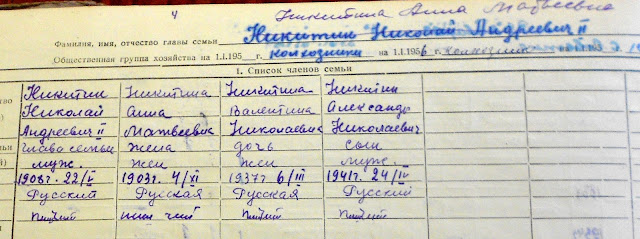 4 Никитина Анна Матвеевна
Фамилия, имя, отчество главы семьи Никитин Николай Андреевич II
Общественная группа хозяйства на 1.I.195 г. колхозники на 1.I.1956 г. колхозник на 1.I.195
1. Список членов семьи
Никитин Никитина Никитина Никитин
Николай Анна Валентина Александр
Андреевич II Матвеевна Николаевна Николаевич
глава семьи жена дочь сын
муж. жен жен муж.
1908г. 22/V 1903г. 4/XI 1937г 6/III 1941г. 24/IV
Русский Русская Русская Русский